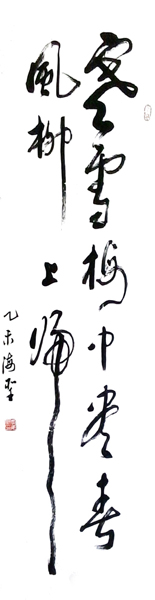 寒雪梅中尽春
风柳上归
乙未海